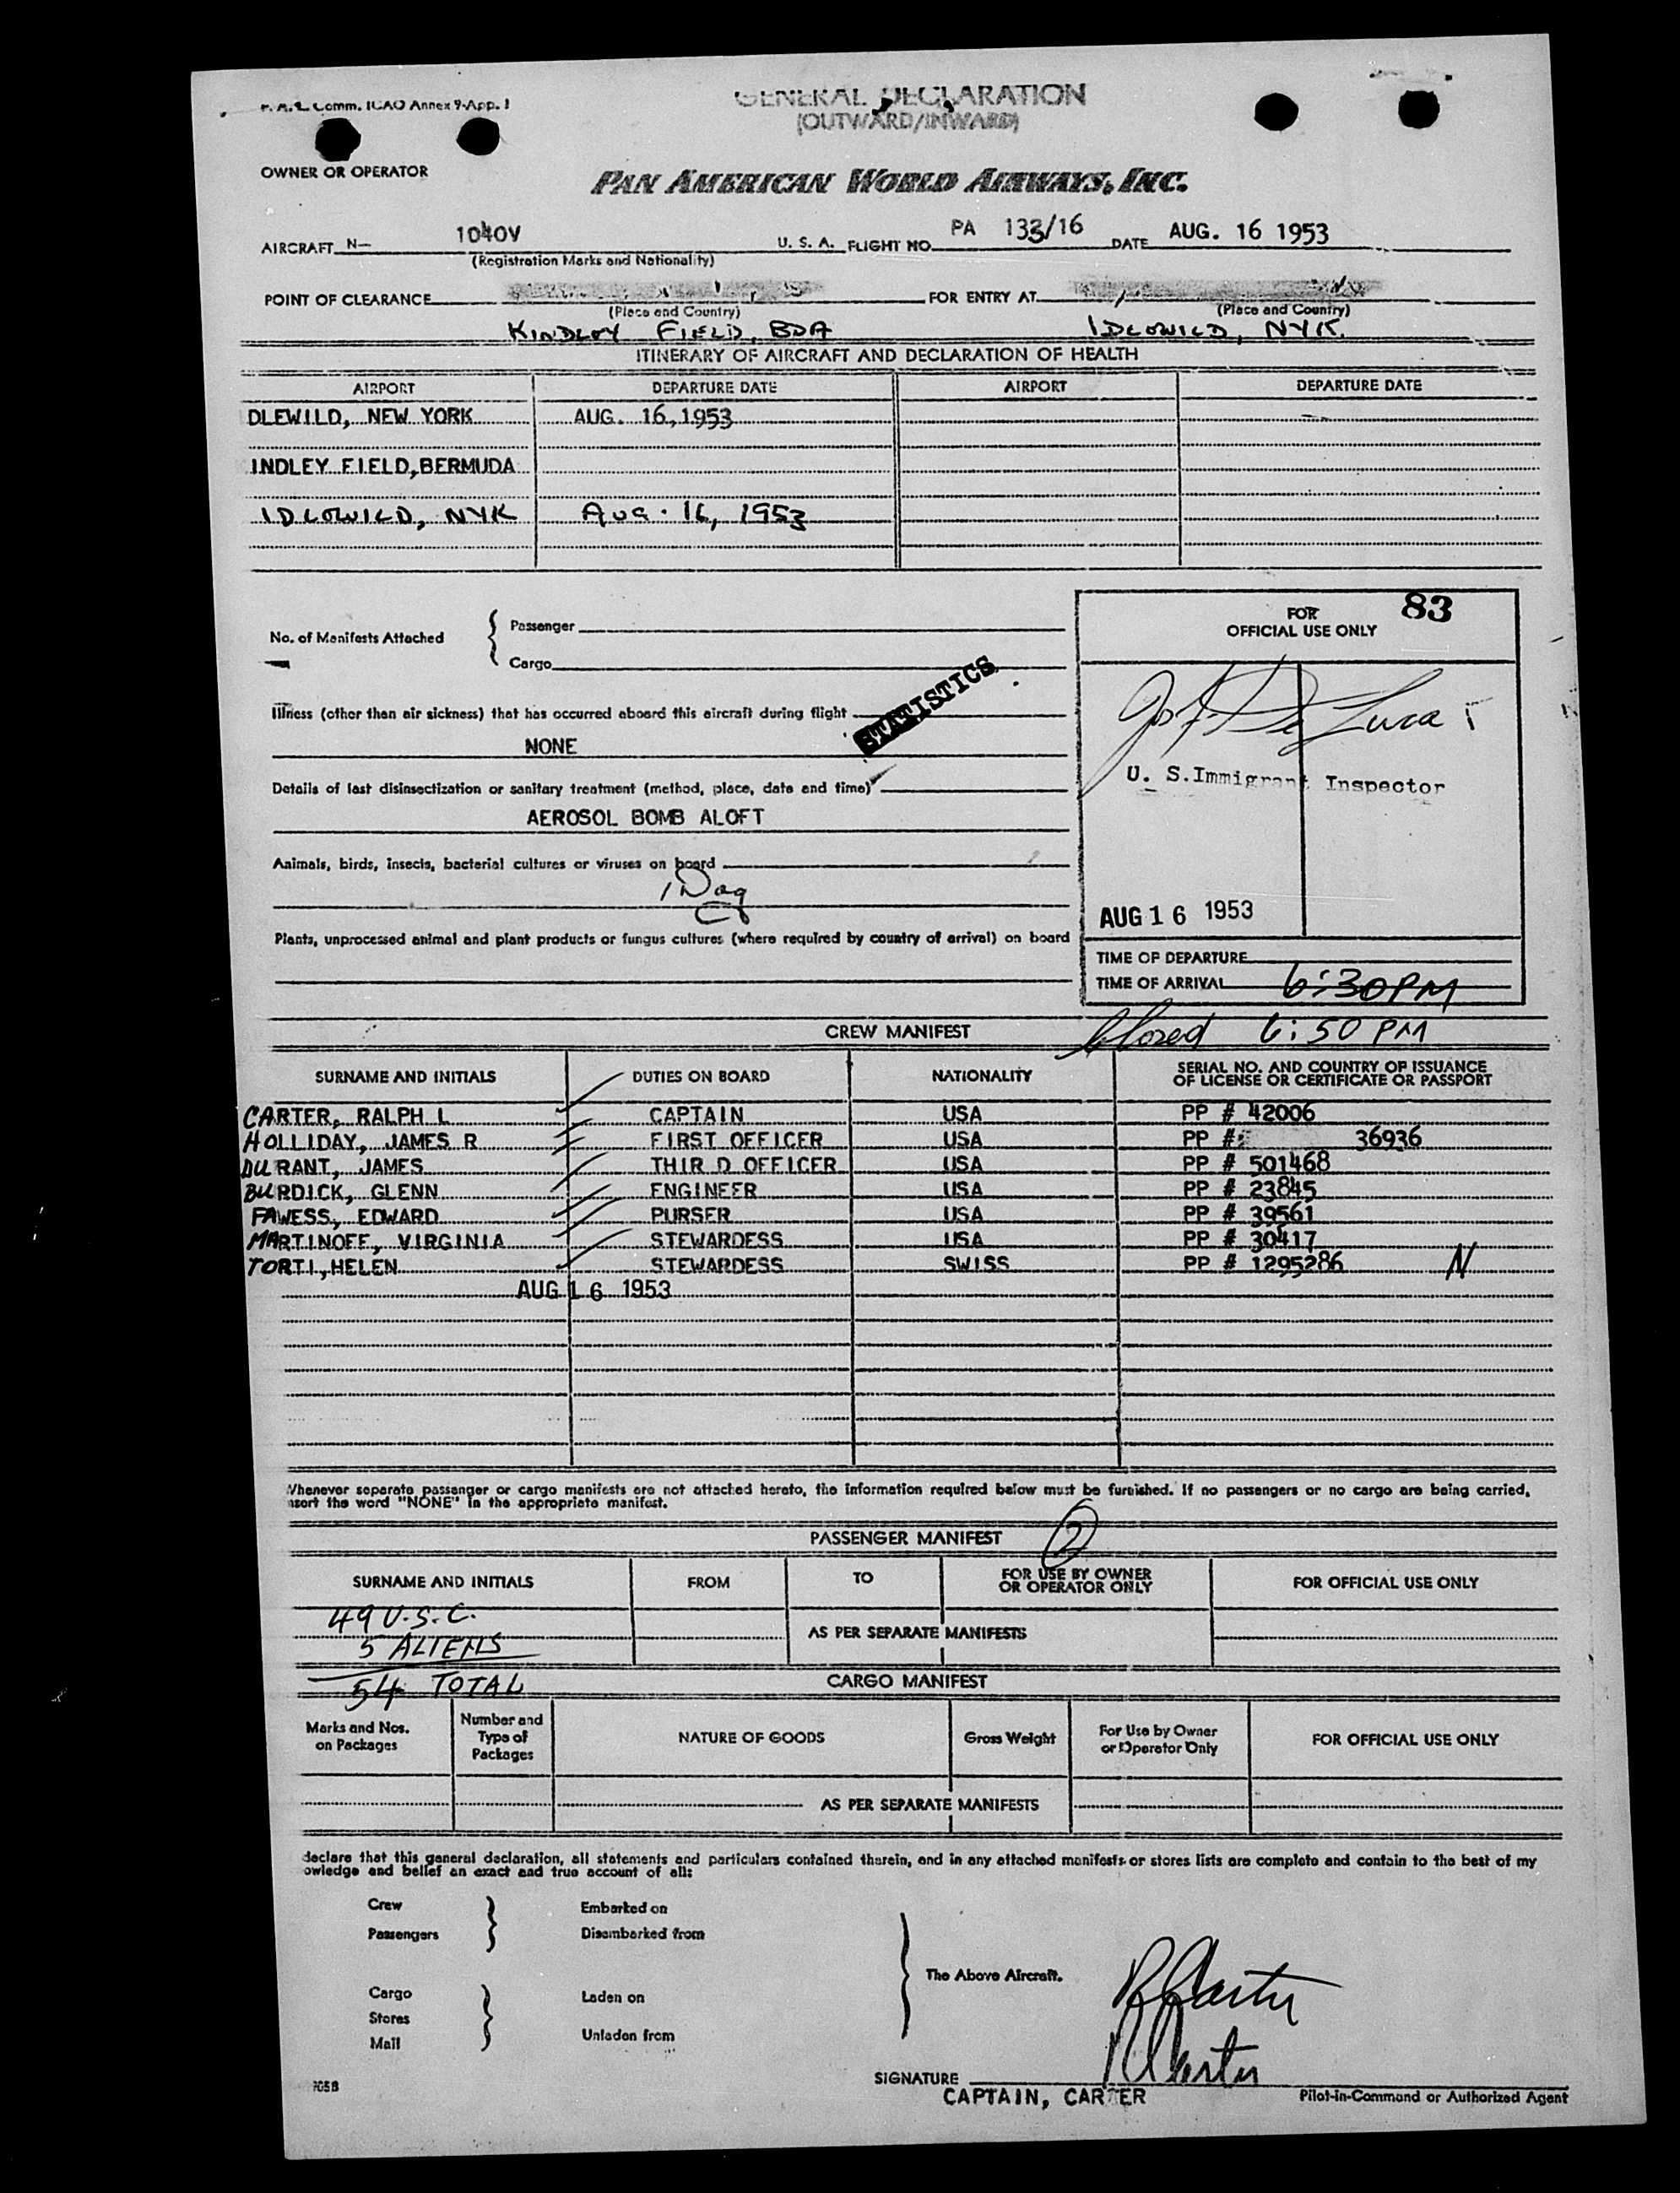 F. A. L. Comm. ICAO Annex 9-App. 1
GENERAL DECLARATION
(OUTWARD/INWARD)
OWNER OR OPERATOR
PAN AMERICAN WORLD AIRWAYS, INC.
AIRCRAFT N— 1040V U. S. A. FLIGHT NO. PA 133/16 DATE AUG. 16 1953
(Registration Marks and Nationality)
POINT OF CLEARANCE FOR ENTRY AT
(Place and Country) (Place and Country)
KINDLEY FIELD, BDA IDLEWILD, NYK.
ITINERARY OF AIRCRAFT AND DECLARATION OF HEALTH
AIRPORT DEPARTURE DATE AIRPORT DEPARTURE DATE
DLEWILD, NEW YORK AUG. 16, 1953
INDLEY FIELD, BERMUDA
IDLEWILD, NYK AUG. 16, 1953
FOR 83
OFFICIAL USE ONLY
No. of Manifests Attached
Passenger
Cargo
STATISTICS
Illness (other than air sickness) that has occurred aboard this aircraft during flight
NONE
Jos F. De Luca
U. S. Immigrant Inspector
Details of last disinsectization or sanitary treatment (method, place, date and time)
AEROSOL BOMB ALOFT
Animals, birds, insects, bacterial cultures or viruses on board
1 Dog
AUG 16 1953
Plants, unprocessed animal and plant products or fungus cultures (where required by country of arrival) on board
TIME OF DEPARTURE
TIME OF ARRIVAL 6:30 PM
CREW MANIFEST Closed 6:50 PM
SURNAME AND INITIALS DUTIES ON BOARD NATIONALITY SERIAL NO. AND COUNTRY OF ISSUANCE
OF LICENSE OR CERTIFICATE OR PASSPORT
CARTER, RALPH L CAPTAIN USA PP # 42006
HOLLIDAY, JAMES R FIRST OFFICER USA PP # 36936
DURANT, JAMES THIR D OFFICER USA PP # 501468
BURDICK, GLENN ENGINEER USA PP # 23845
FAWESS, EDWARD PURSER USA PP # 39561
MARTINOFF, VIRGINIA STEWARDESS USA PP # 30417
TORTI, HELEN STEWARDESS SWISS PP # 1295286 N
AUG 16 1953
Whenever separate passenger or cargo manifests are not attached hereto, the information required below must be furnished. If no passengers or no cargo are being carried,
nsert the word "NONE" in the appropriate manifest.
PASSENGER MANIFEST 2
SURNAME AND INITIALS FROM TO FOR USE BY OWNER
OR OPERATOR ONLY FOR OFFICIAL USE ONLY
49 U.S.C.
AS PER SEPARATE MANIFESTS
5 ALIENS
54 TOTAL
CARGO MANIFEST
Marks and Nos.
on Packages
Number and
Type of
Packages
NATURE OF GOODS
Gross Weight
For Use by Owner
or Operator Only
FOR OFFICIAL USE ONLY
AS PER SEPARATE MANIFESTS
declare that this general declaration, all statements and particulars contained therein, and in any attached manifests or stores lists are complete and contain to the best of my
owledge and belief an exact and true account of all:
Crew Embarked on
Passengers Disembarked from
The Above Aircraft.
Cargo Laden on
Stores
Mail Unladen from
R Carter
R Carter
SIGNATURE
CAPTAIN, CARTER Pilot-in-Command or Authorized Agent
705B